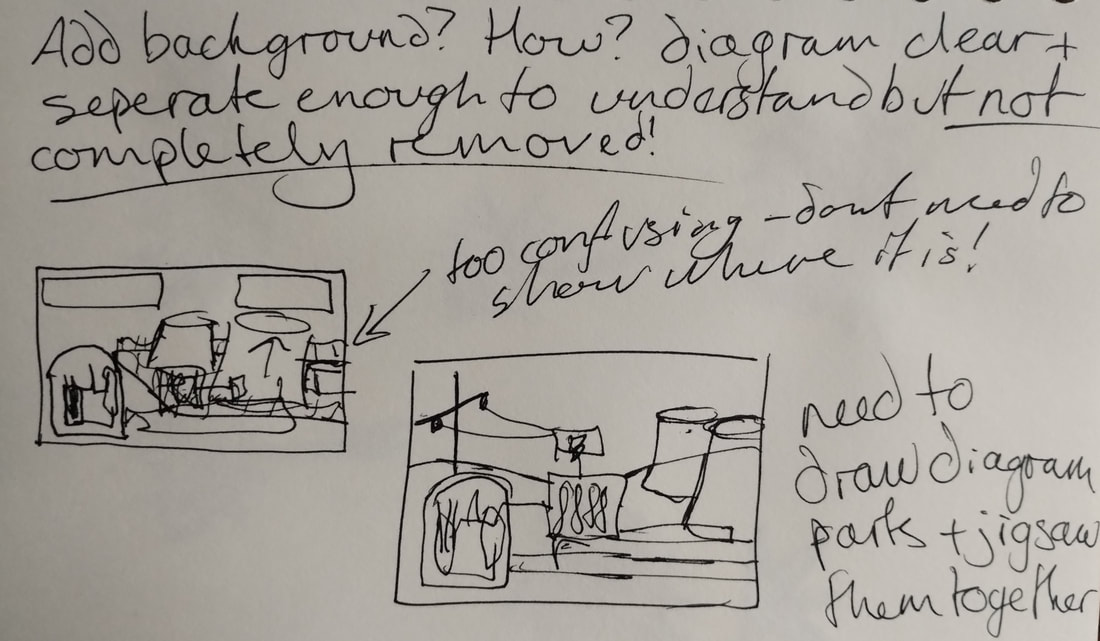 Add background? How? diagram clear +
seperate enough to understand but not
completely removed!
too confusing - dont need to
show where it is!
need to
draw diagram
parts + jigsaw
them together